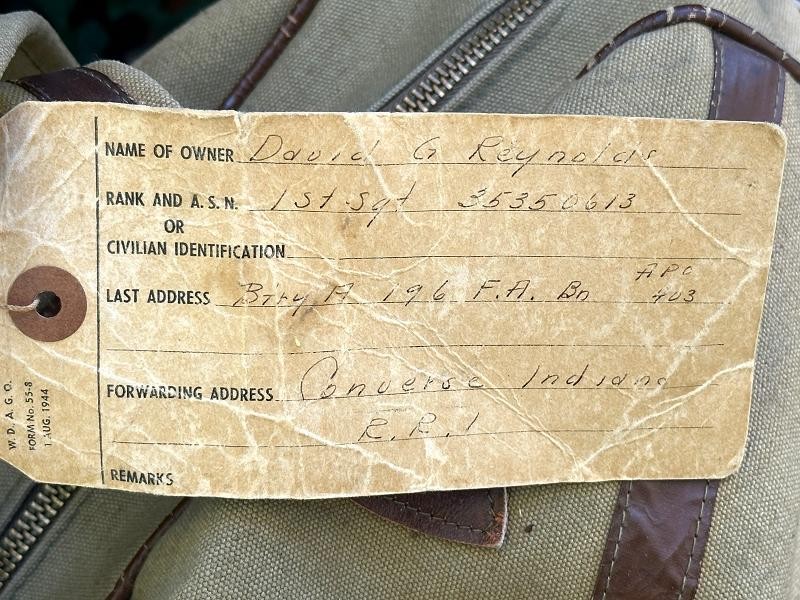 NAME OF OWNER David G Reynolds
RANK AND A. S. N. 1st Sgt 35350613
OR
CIVILIAN IDENTIFICATION
APO
LAST ADDRESS Btry A 196 F.A. Bn 403
FORWARDING ADDRESS Converse Indiana
R.R. 1
REMARKS
W. D. A. G. O.
FORM No. 55-8
1 AUG. 1944